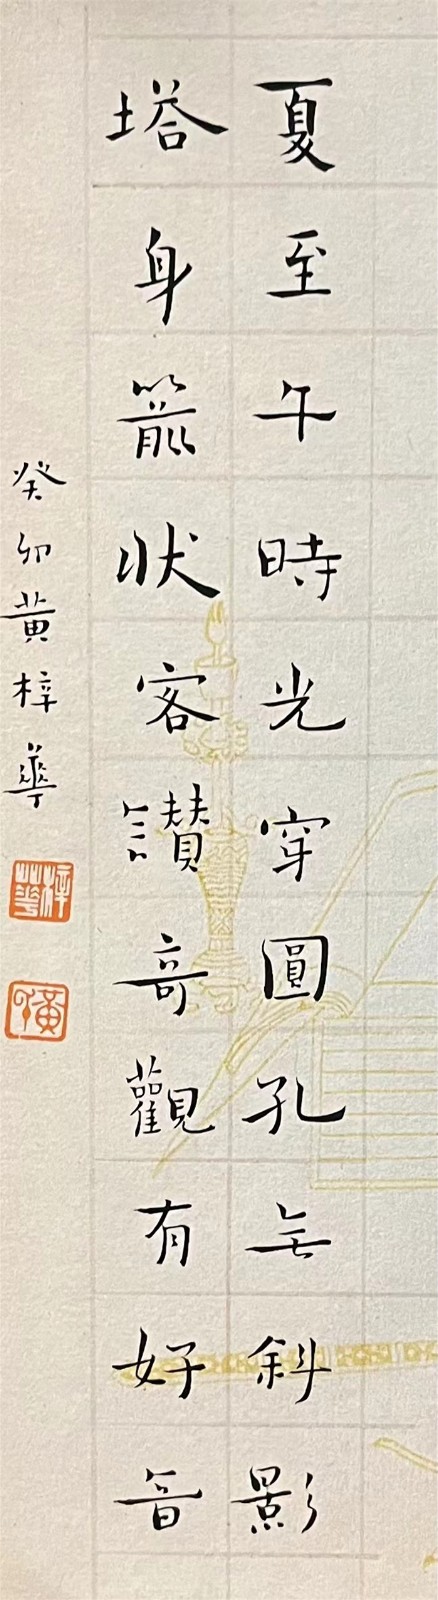 夏至午時光穿圓孔無斜影
塔身箭状客讃竒觀有好音
癸卯黃梓華
梓華